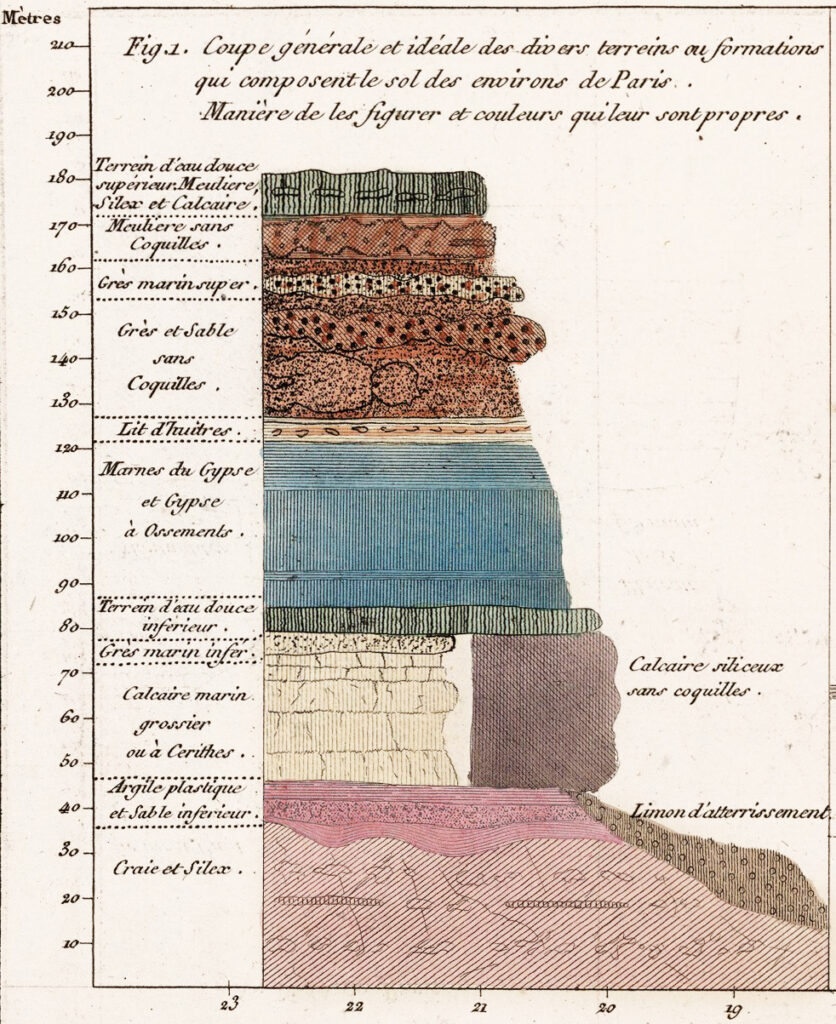 Mètres
Fig.1. Coupe générale et idéale des divers terreins ou formations
qui composent le sol des environs de Paris.
Manière de les figurer et couleurs qui leur sont propres.
210
200
190
180
170
160
150
140
130
120
110
100
90
80
70
60
50
40
30
20
10
Terrein d'eau douce
supérieur. Meuliere,
Silex et Calcaire.
Meuliere sans
Coquilles.
Grès marin super.
Grès et Sable
sans
Coquilles.
Lit d'huitres.
Marnes du Gypse
et Gypse
à Ossements.
Terrein d'eau douce
inférieur.
Grès marin infér.
Calcaire marin
grossier
ou à Cerithes.
Argile plastique
et Sable inferieur.
Craie et Silex.
Calcaire siliceux
sans coquilles.
Limon d'atterrissement.
23 22 21 20 19